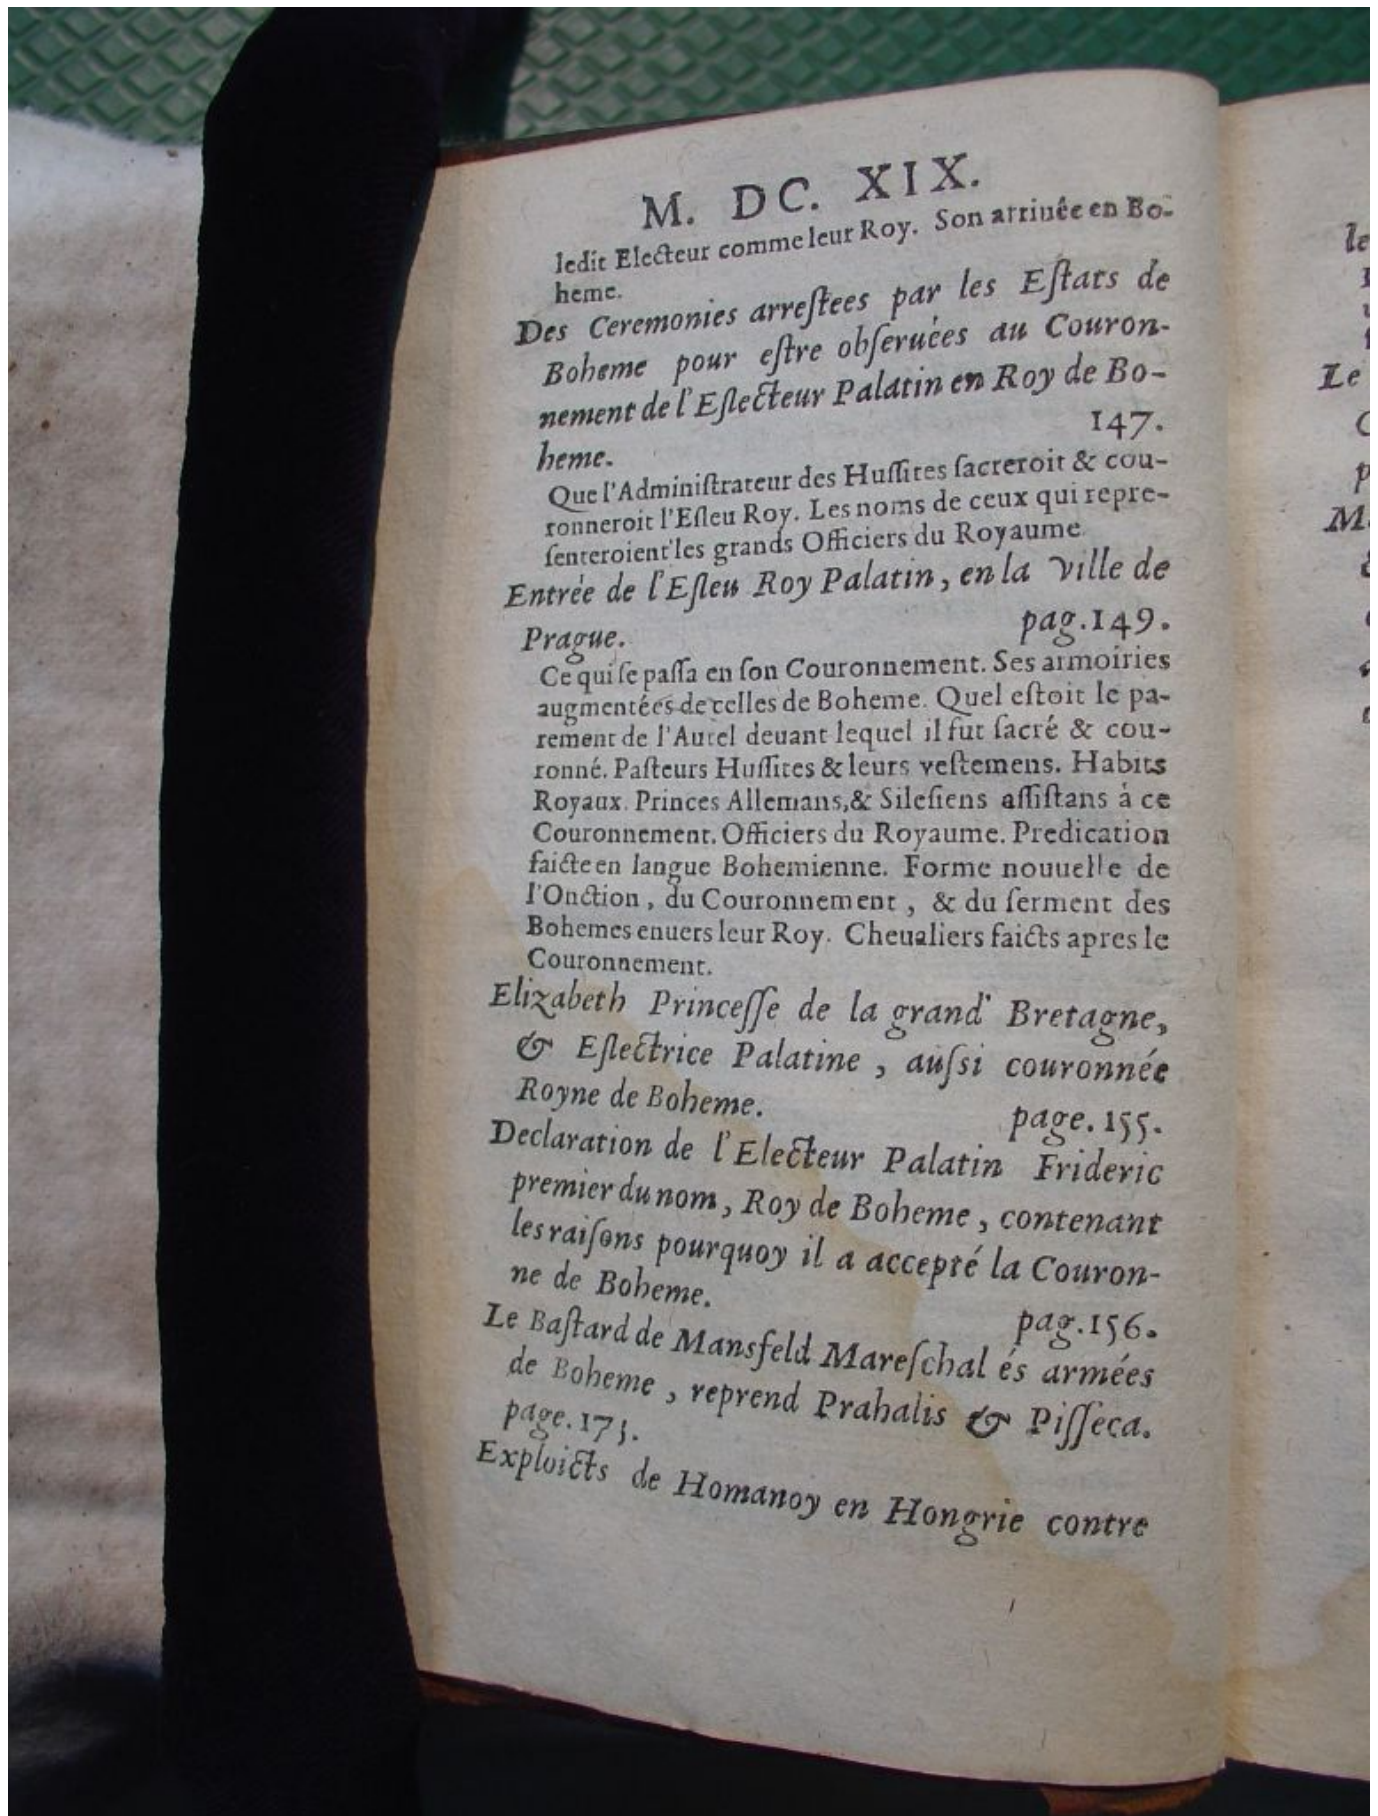 M. DC. XIX.
ledit Electeur comme leur Roy. Son arriuée en Bo-
heme.
Des Ceremonies arreſtees par les Eſtats de
Boheme pour eſtre obſeruées au Couron-
nement de l'Eſlecteur Palatin en Roy de Bo-
heme. 147.
Que l'Adminiſtrateur des Huſſites ſacreroit & cou-
ronneroit l'Eſleu Roy. Les noms de ceux qui repre-
ſenteroient les grands Officiers du Royaume
Entrée de l'Eſleu Roy Palatin, en la Ville de
Prague. pag.149.
Ce qui ſe paſſa en ſon Couronnement. Ses armoiries
augmentées de celles de Boheme. Quel eſtoit le pa-
rement de l'Autel deuant lequel il fut ſacré & cou-
ronné. Paſteurs Huſſites & leurs veſtemens. Habits
Royaux. Princes Allemans, & Sileſiens aſſiſtans à ce
Couronnement. Officiers du Royaume. Predication
faicte en langue Bohemienne. Forme nouuelle de
l'Onction, du Couronnement, & du ſerment des
Bohemes enuers leur Roy. Cheualiers faicts apres le
Couronnement.
Elizabeth Princeſſe de la grand' Bretagne,
& Eſlectrice Palatine, auſsi couronnée
Royne de Boheme. page. 155.
Declaration de l'Electeur Palatin Frideric
premier du nom, Roy de Boheme, contenant
les raiſons pourquoy il a accepté la Couron-
ne de Boheme. pag.156.
Le Baſtard de Mansfeld Mareſchal és armées
de Boheme, reprend Prahalis & Piſſeca.
page.173.
Exploicts de Homanoy en Hongrie contre
le
Le